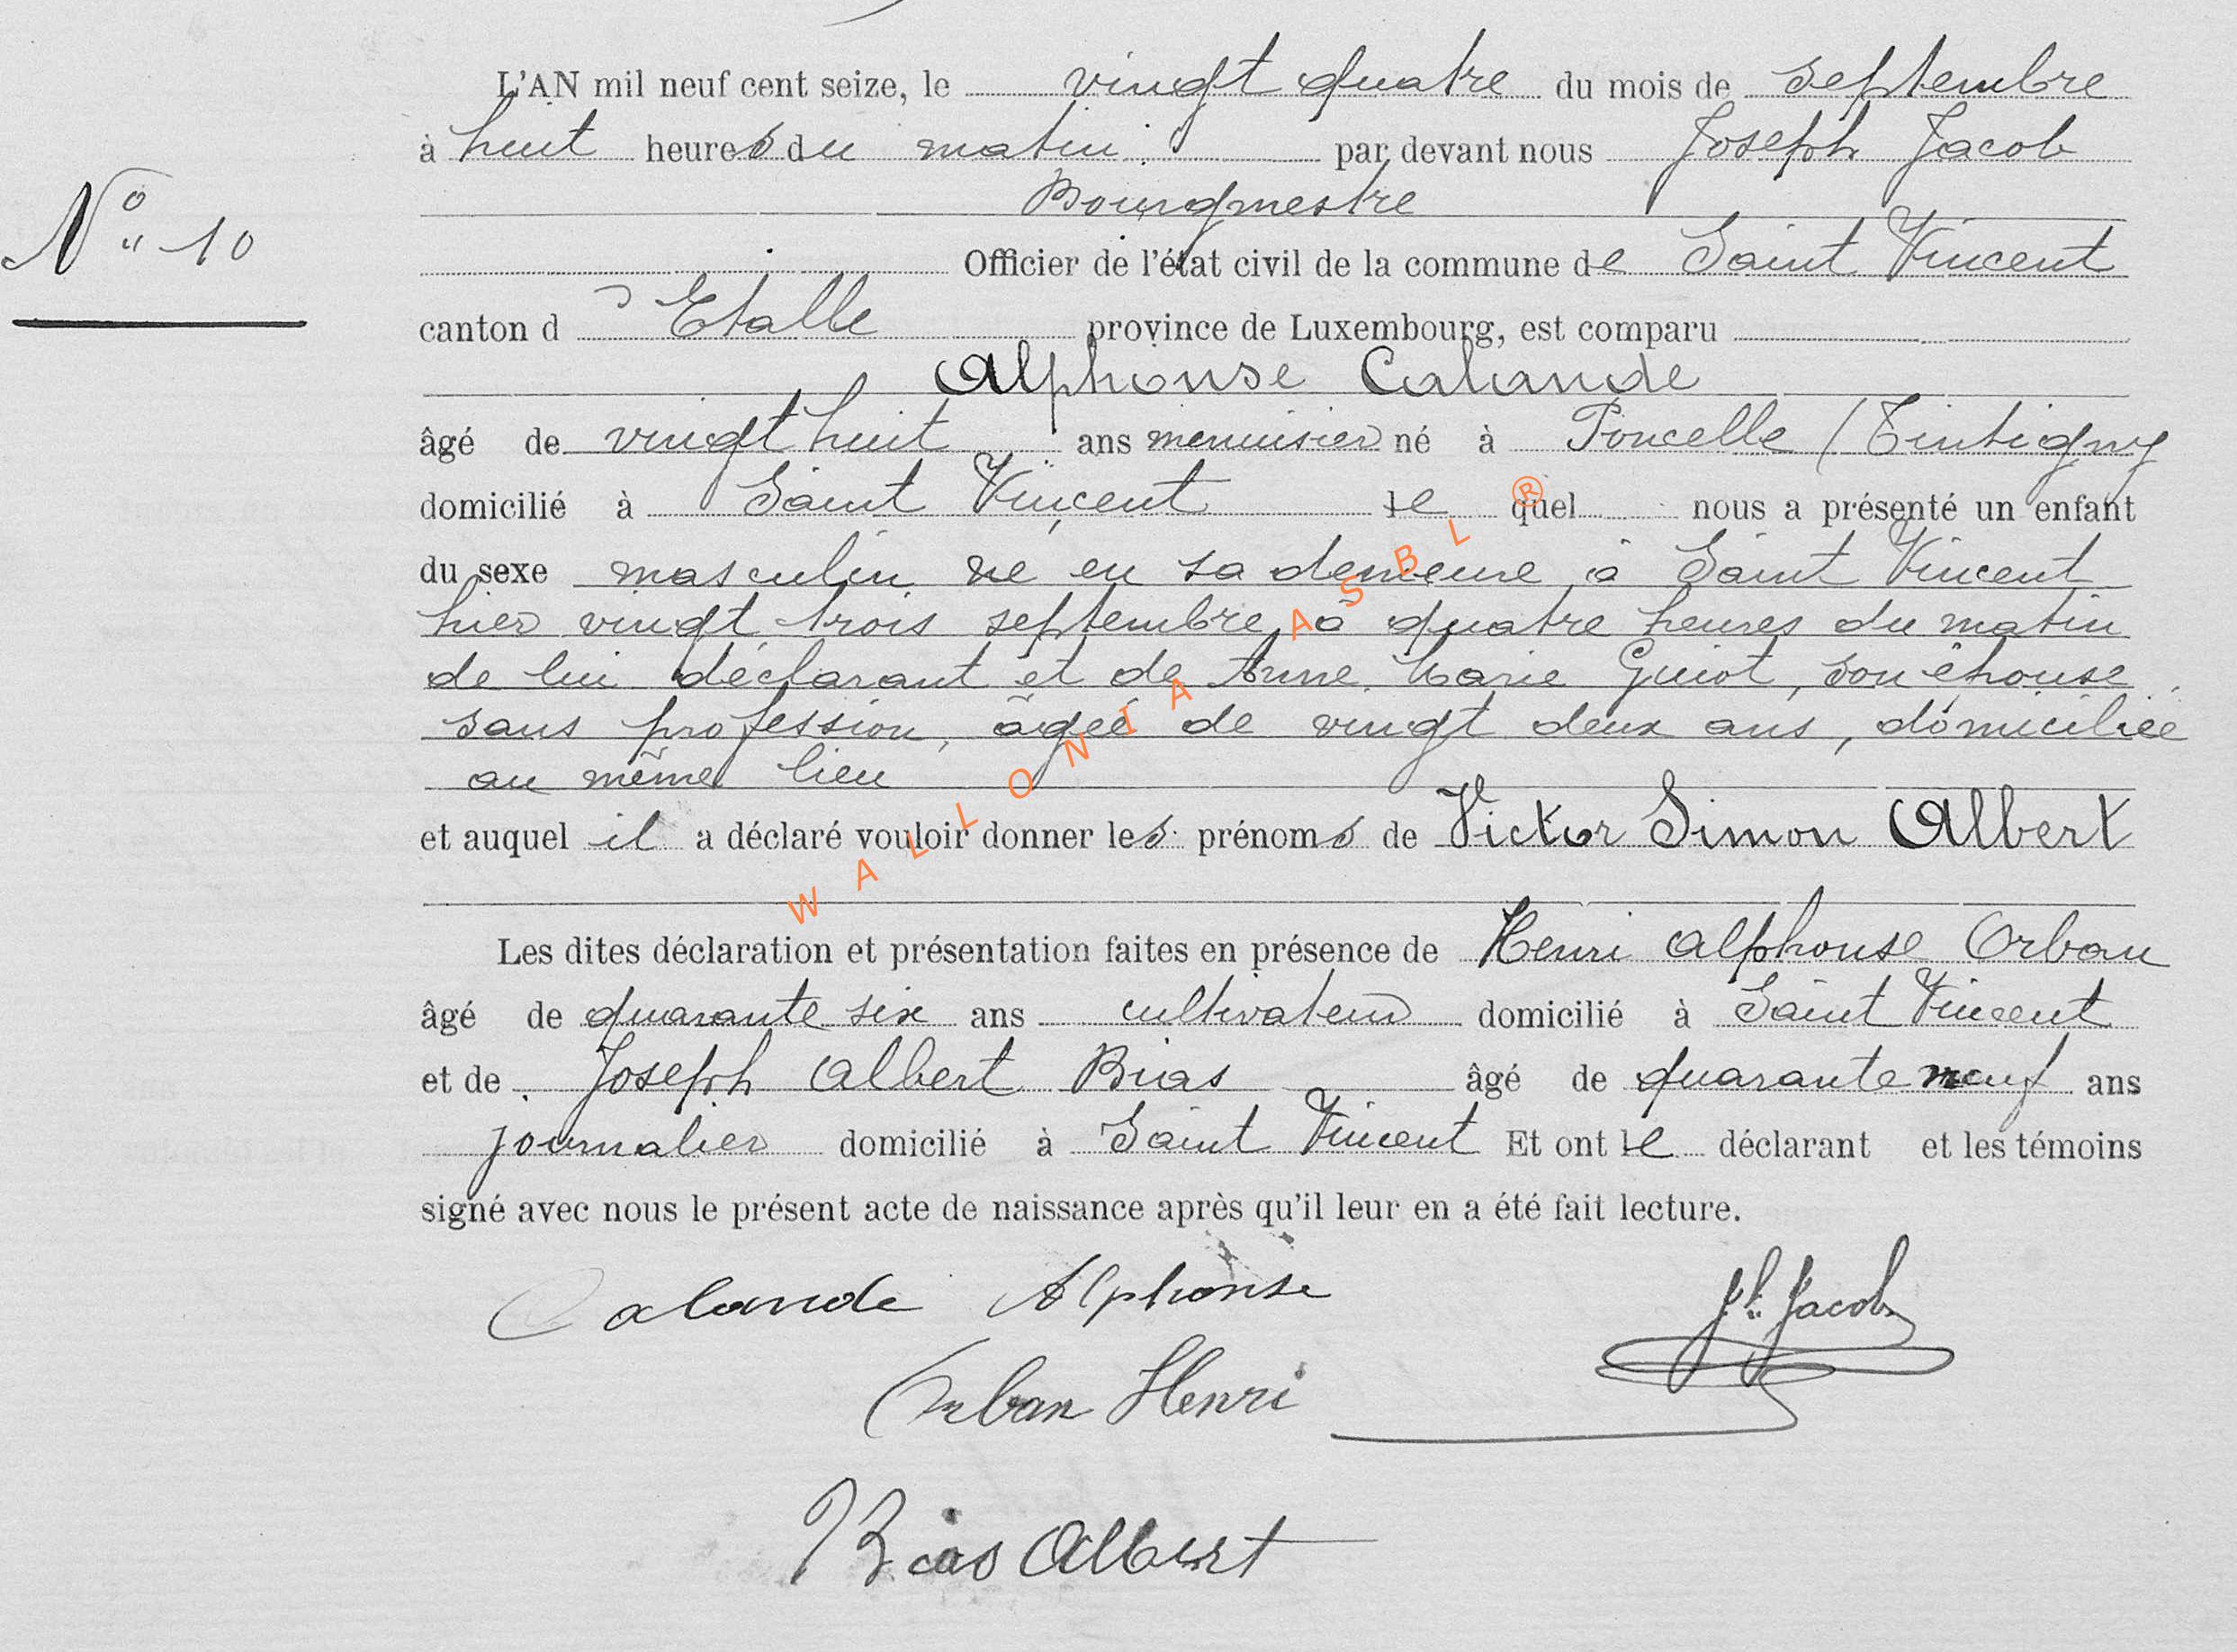 L'AN mil neuf cent seize, le vingt quatre du mois de septembre
à huit heures du matin par devant nous Joseph Jacob
Bourgmestre
N° 10
Officier de l'état civil de la commune de Saint Vincent
canton d'Etalle province de Luxembourg, est comparu
Alphonse Calande
âgé de vingt huit ans menuisier né à Poncelle (Tintigny
domicilié à Saint Vincent lequel nous a présenté un enfant
du sexe masculin né en sa demeure à Saint Vincent
hier vingt trois septembre, à quatre heures du matin
de lui déclarant et de Anne Marie Guiot, son épouse
sans profession, âgée de vingt deux ans, domiciliée
au même lieu
et auquel il a déclaré vouloir donner les prénoms de Victor Simon Albert
Les dites déclaration et présentation faites en présence de Henri Alphonse Orban
âgé de quarante six ans cultivateur domicilié à Saint Vincent
et de Joseph Albert Bias âgé de quarante neuf ans
journalier domicilié à Saint Vincent Et ont le déclarant et les témoins
signé avec nous le présent acte de naissance après qu'il leur en a été fait lecture.
Calande Alphonse
Jh. Jacob
Orban Henri
Bias Albert
WALLONIA ASBL ®